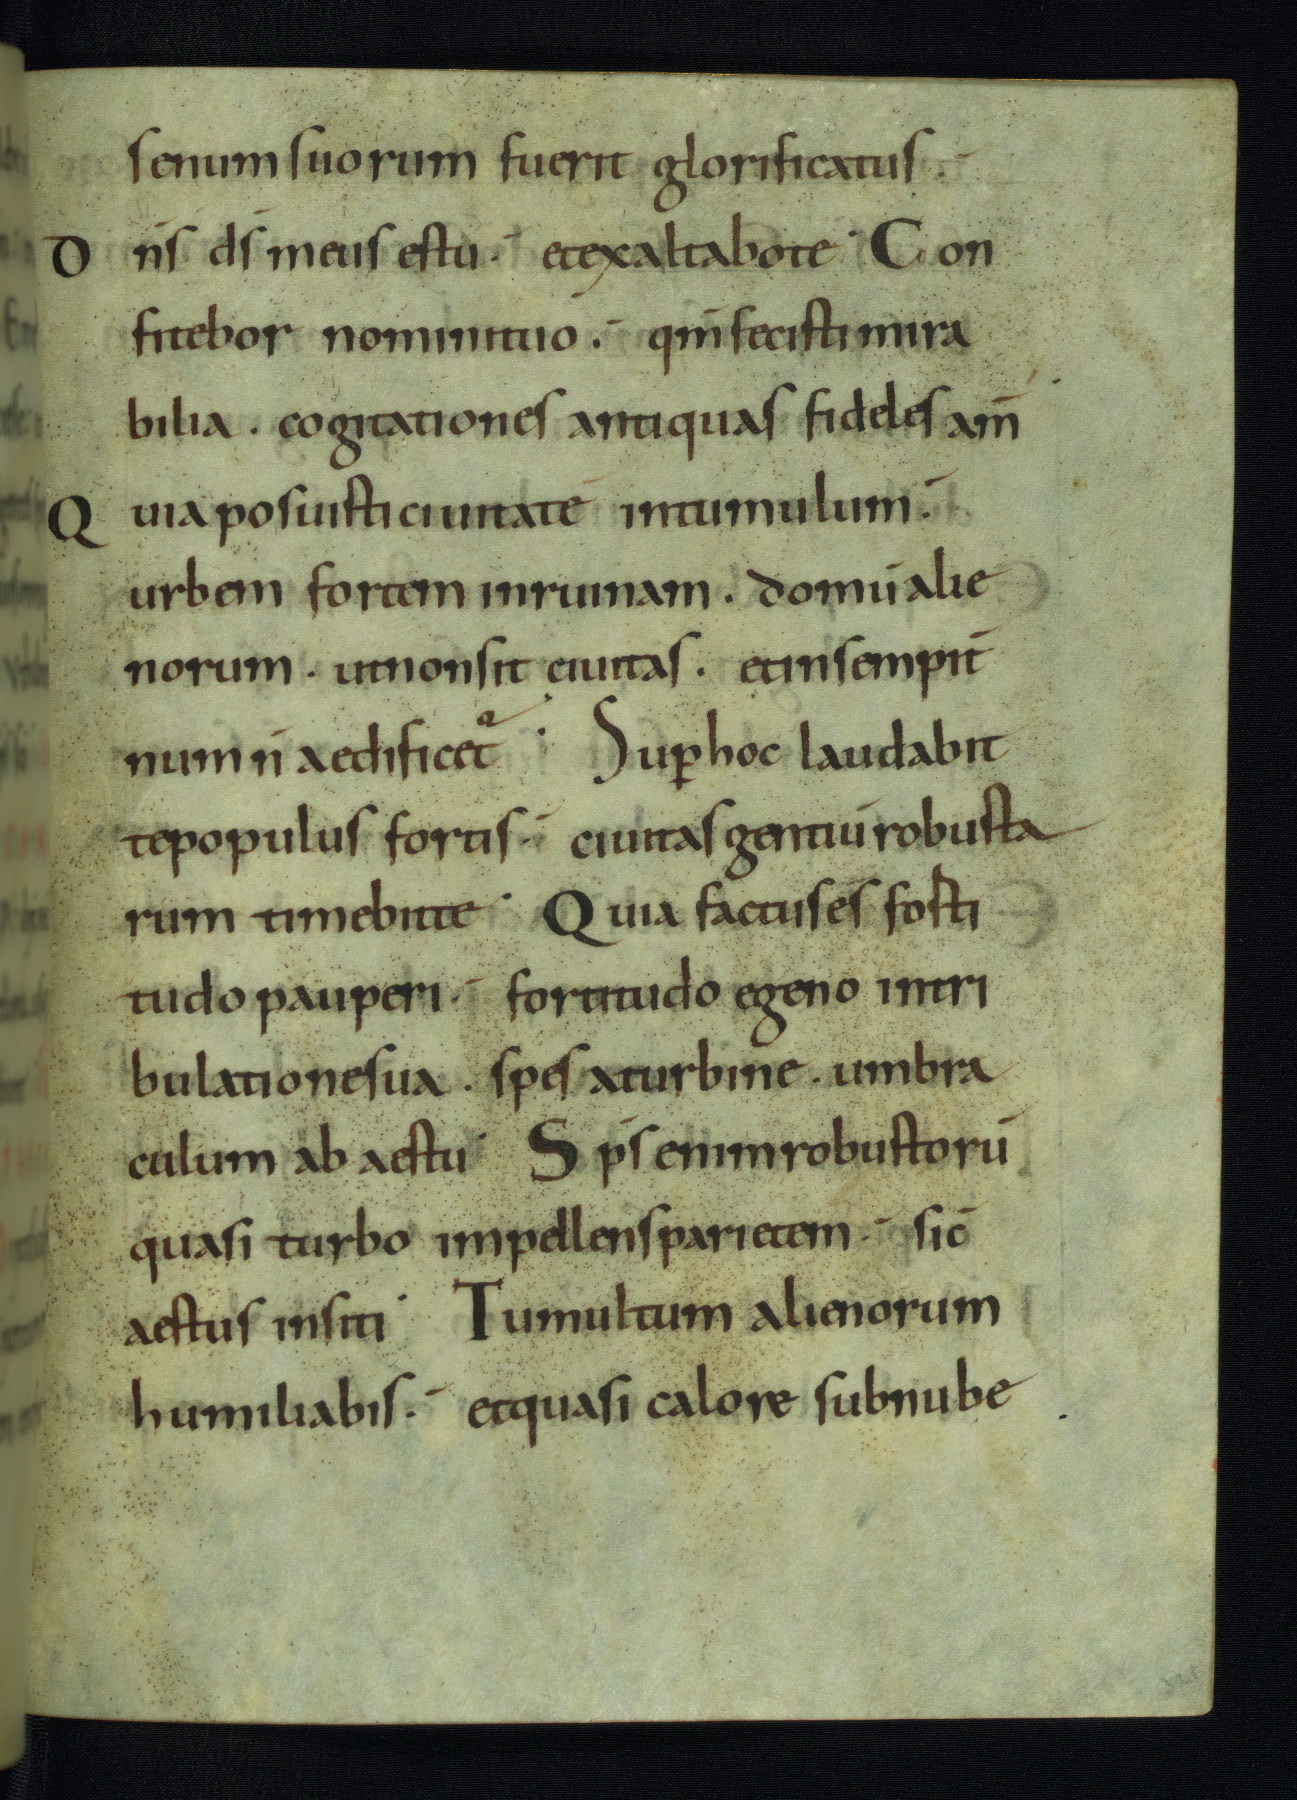 senum suorum fuerit glorificatus.
Dn̄s ds̄ meus estu. et exaltabote Con
fitebor nominituo. qm̄ fecisti mira
bilia. cogitationes antiquas fideles am̄
Quia posuisti ciuitatē intumulum.
urbem fortem inruinam. domū alie
norum. utnonsit ciuitas. etinsempit̄
num n̄ aedificet᷑ Sup̱ hoc laudabit
tepopulus fortis. ciuitas gentiū robusta
rum timebitte Quia factus ēs forti
tudo pauperi. fortitudo egeno intri
bulationesua. spes aturbine. umbra
culum ab aestu Sp̄s enim robustorū
quasi turbo impellens parietem. sic̄
aestus insiti Tumultum alienorum
humiliabis. etquasi calore subnube